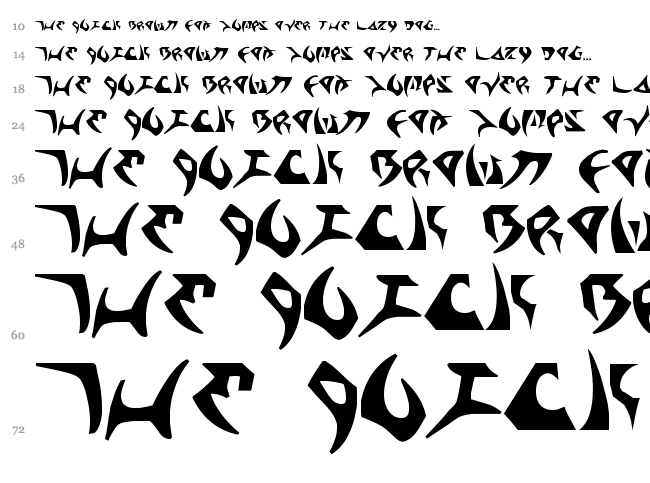 10 THE QUICK BROWN FOX JUMPS OVER THE LAZY DOG...
14 THE QUICK BROWN FOX JUMPS OVER THE LAZY DOG...
18 THE QUICK BROWN FOX JUMPS OVER THE LA
24 THE QUICK BROWN FOX JUMPS OV
36 THE QUICK BROWN FO
48 THE QUICK BRO
60 THE QUICK B
72 THE QUICK